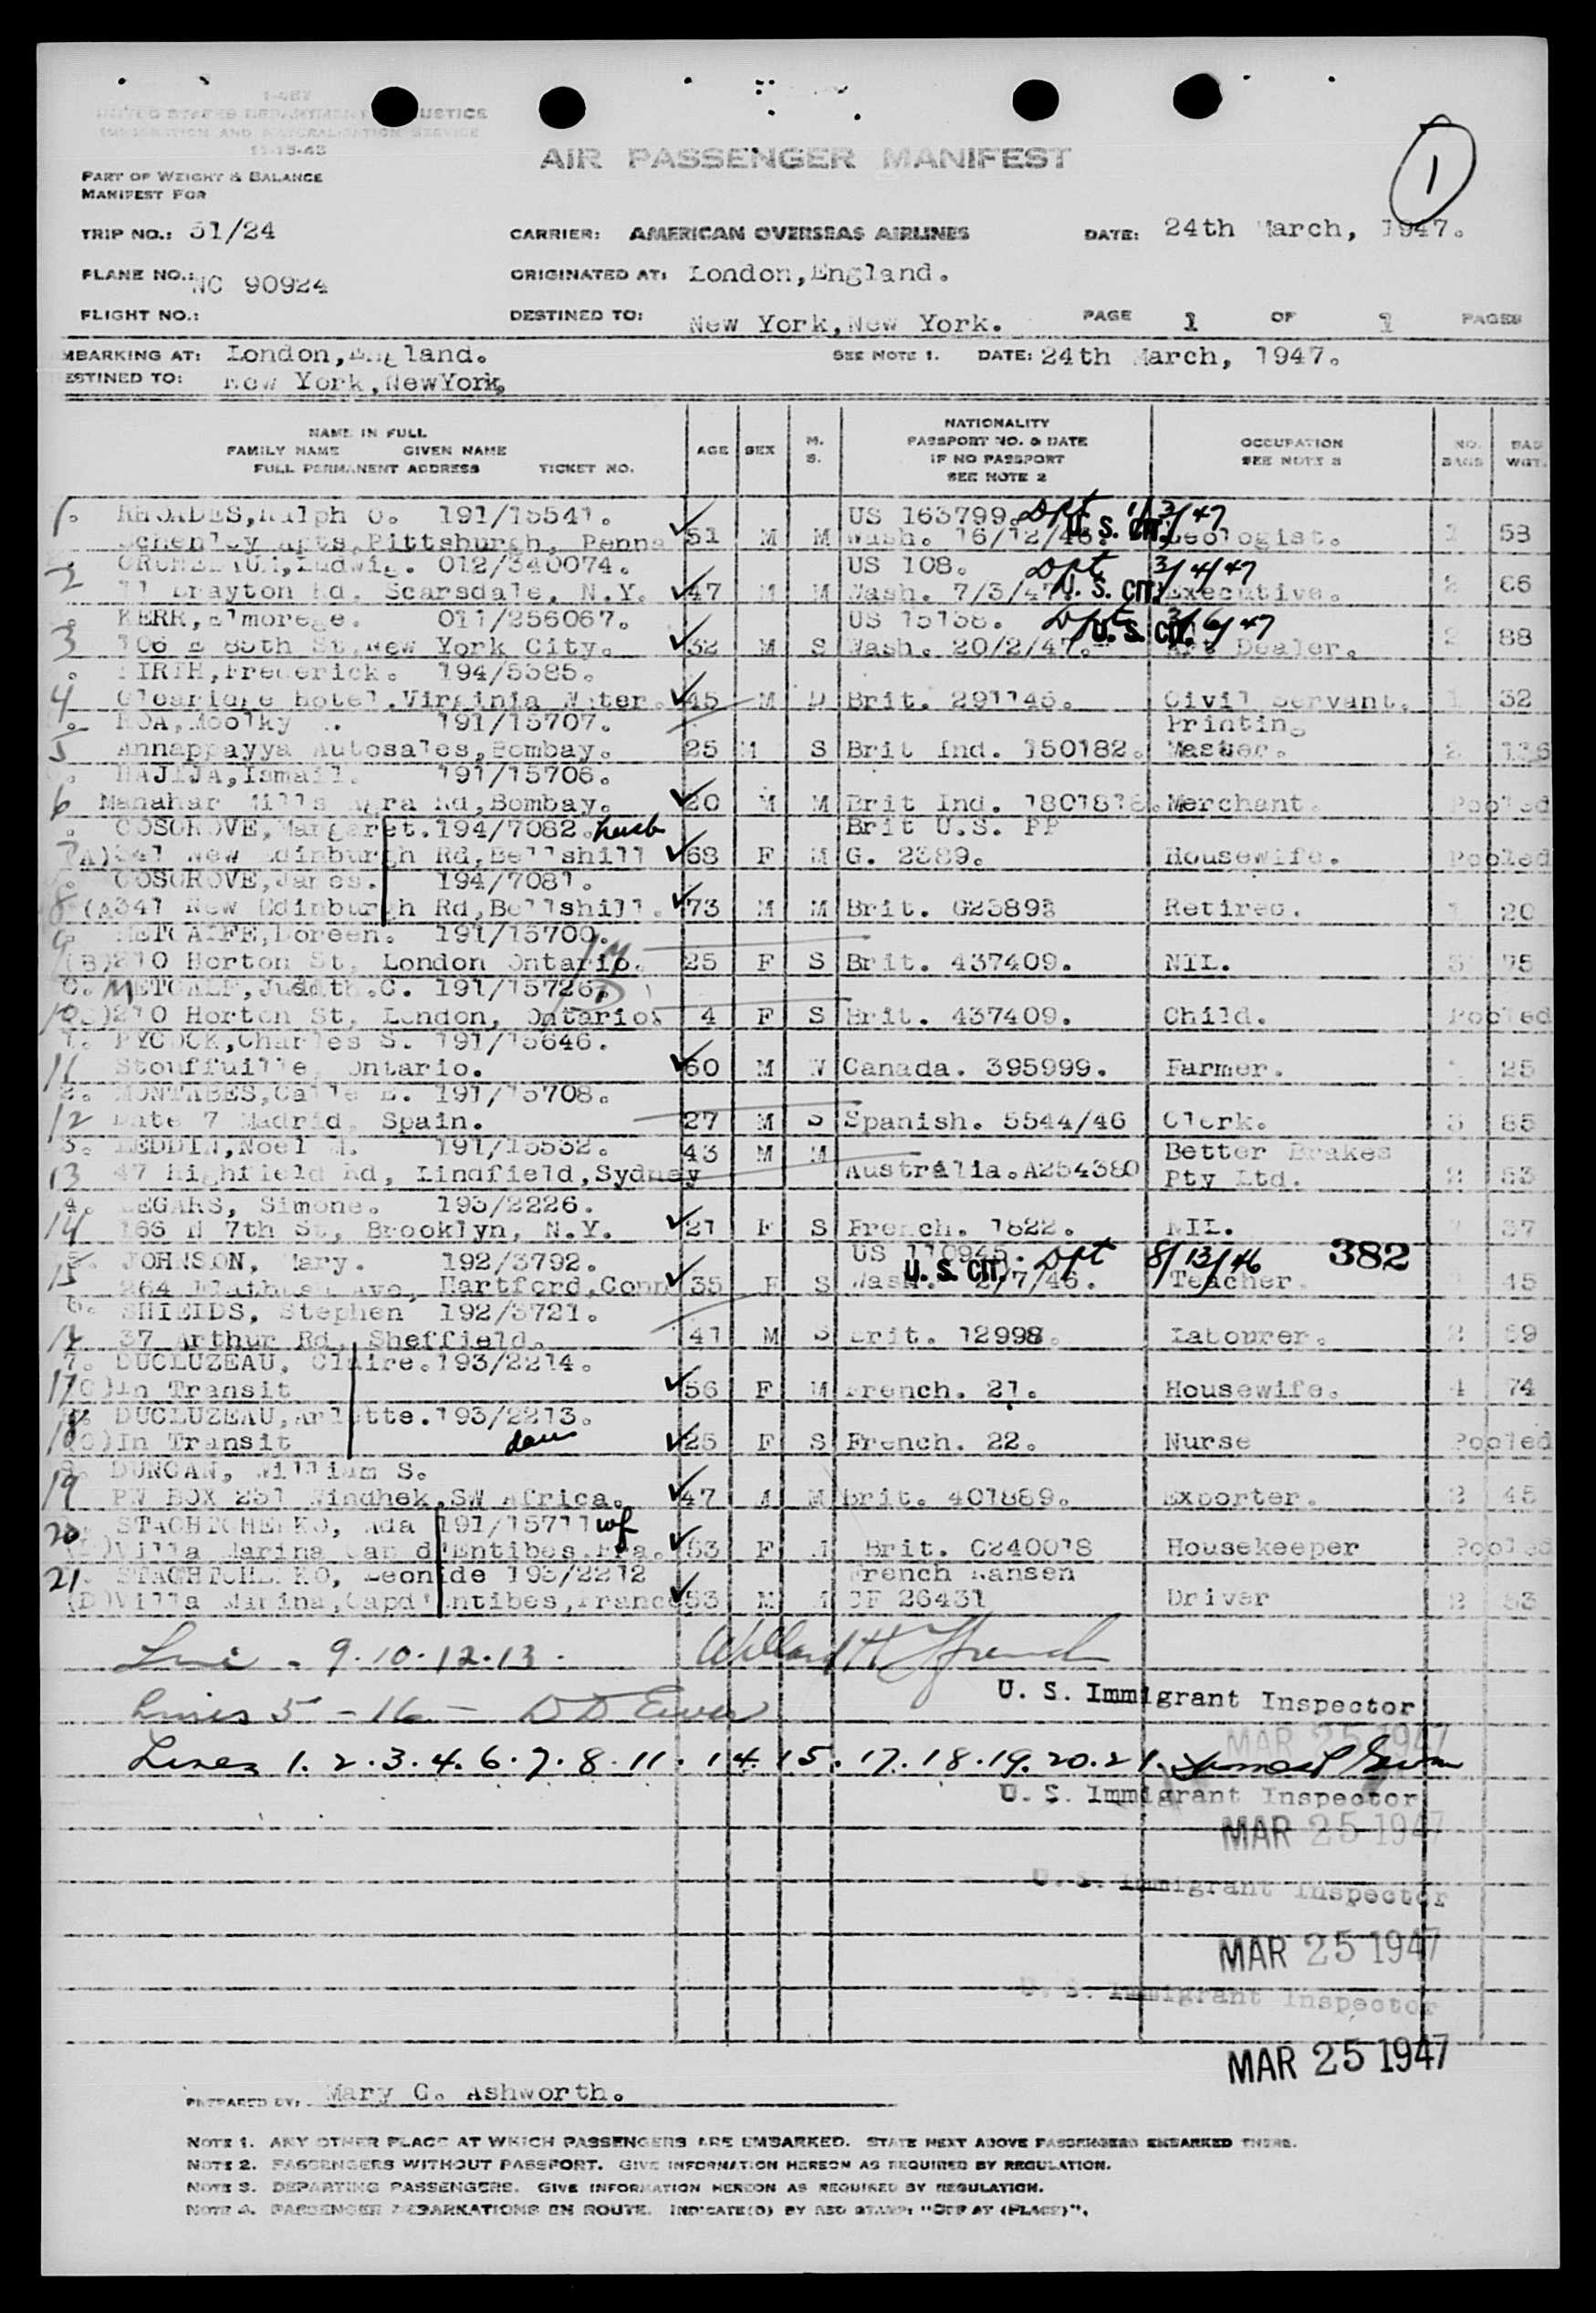 1-487
UNITED STATES DEPARTMENT JUSTICE
IMMIGRATION AND NATURALIZATION SERVICE
AIR PASSENGER MANIFEST
1
PART OF WEIGHT & BALANCE
MANIFEST FOR
TRIP NO.: 51/24 CARRIER: AMERICAN OVERSEAS AIRLINES DATE: 24th March, 1947.
PLANE NO.: NC 90924 ORIGINATED AT: London,England.
FLIGHT NO.: DESTINED TO: New York,New York. PAGE 1 OF 1 PAGES
MBARKING AT: London,England. SEE NOTE 1. DATE: 24th March, 1947.
ESTINED TO: New York,NewYork,
NAME IN FULL
FAMILY NAME GIVEN NAME
FULL PERMANENT ADDRESS TICKET NO. AGE SEX M. S. NATIONALITY PASSPORT NO. & DATE IF NO PASSPORT SEE NOTE 2 OCCUPATION SEE NOTE 3 NO. BAGS BAG WGT.
1. RHOADES,Ralph O. 191/15541. US 163799. Dpt 1/3/47
Schenley Apts,Pittsburgh, Penna 51 M M Wash. 16/12/46. U. S. CIT. Geologist. 1 58
2 Ludwig. 012/340074. US 108. Dpt 3/4/47
11 Brayton Rd. Scarsdale, N.Y. 47 M M Wash. 7/3/47. U. S. CIT. Executive. 2 66
3 KERR, 011/256067. US 15158. Dpt 3/6/47
106 E 85th St,New York City. 32 M S Wash. 20/2/47. U. S. CIT. Art Dealer. 2 88
4 FIRTH,Frederick. 194/5385.
Hotel,Virginia Water. 45 M D Brit. 291145. Civil Servant. 1 32
5 ROA,Moolky 191/15707. Printing
Annappayya Autosales,Bombay. 25 M S Brit Ind. 150182. Master. 2 136
6 HAJIJA,Ismail. 191/15706.
Manahar Mills Agra Rd,Bombay. 20 M M Brit Ind. Merchant. Pooled
7 COSGROVE,Margaret. 194/7082. husb Brit U.S. PP
(A)341 New Edinburgh Rd,Bellshill 68 F M G. 2389. Housewife. Pooled
8 COSGROVE,James. 194/7081.
(A341 New Edinburgh Rd,Bellshill. 73 M M Brit. Retired. 1 20
9 METCALFE,Doreen. 191/15700.
(B)210 Horton St, London Ontario. 25 F S Brit. 437409. NIL. 3 75
10 METCALF,Judith.C. 191/15726.
210 Horton St, London, Ontario. 4 F S Brit. 437409. Child. Pooled
11 PYCOCK,Charles S. 191/15646.
Stouffuille, Ontario. 60 M W Canada. 395999. Farmer. 25
12 MONTABES, 191/15708.
7 Madrid, Spain. 27 M S Spanish. 5544/46 Clerk. 3 85
13 LEDDIN,Noel M. 191/15532. 43 M M Better Brakes
47 Highfield Rd, Lindfield,Sydney Australia.A254380 Pty Ltd. 2 53
14 LEGARS, Simone. 193/2226.
166 N 7th St, Brooklyn, N.Y. 21 F S French. 1822. NIL. 37
15 JOHNSON, Mary. 192/3792. US 110945. Dpt 8/13/46 382
264 Ave, Hartford,Conn 35 F S Wash. 2/7/46. U. S. CIT. Teacher. 45
SHIELDS, Stephen 192/3721.
37 Arthur Rd, Sheffield. 41 M S Brit. 12998. Labourer. 2 59
17 DUCLUZEAU, Claire.193/2214.
(C)In Transit 56 F M French. 21. Housewife. 4 74
18 DUCLUZEAU,Arlette.193/2213.
(C)In Transit dau 25 F S French. 22. Nurse Pooled
19 DUNCAN, William S.
PW BOX 251 Windhek,SW Africa. 47 M M Brit. 401889. Exporter. 2 45
20 STACHTCHENKO, Ada 191/15711 wf
(D)Villa Marina Cap d'Entibes.Fra. 53 F M Brit. C240018 Housekeeper Pooled
21 STACHTCHENKO, Leonide 193/2212 French Nansen
(D)Villa Marina,Capd'Entibes,France 53 M M CF 26431 Driver 2 53
Line - 9.10.12.13.
U. S. Immigrant Inspector
Lines 5 - 16 -
MAR 25 1947
Lines 1.2.3.4.6.7.8.11.14.15.17.18.19.20.21.
U. S. Immigrant Inspector
MAR 25 1947
U. S. Immigrant Inspector
MAR 25 1947
U. S. Immigrant Inspector
MAR 25 1947
PREPARED BY: Mary C. Ashworth.
NOTE 1. ANY OTHER PLACE AT WHICH PASSENGERS ARE EMBARKED. STATE NEXT ABOVE PASSENGERS EMBARKED THERE.
NOTE 2. PASSENGERS WITHOUT PASSPORT. GIVE INFORMATION HEREON AS REQUIRED BY REGULATION.
NOTE 3. DEPARTING PASSENGERS. GIVE INFORMATION HEREON AS REQUIRED BY REGULATION.
NOTE 4. PASSENGER DEBARKATIONS EN ROUTE. INDICATE(D) BY RED STAMP: "OFF AT (PLACE)".